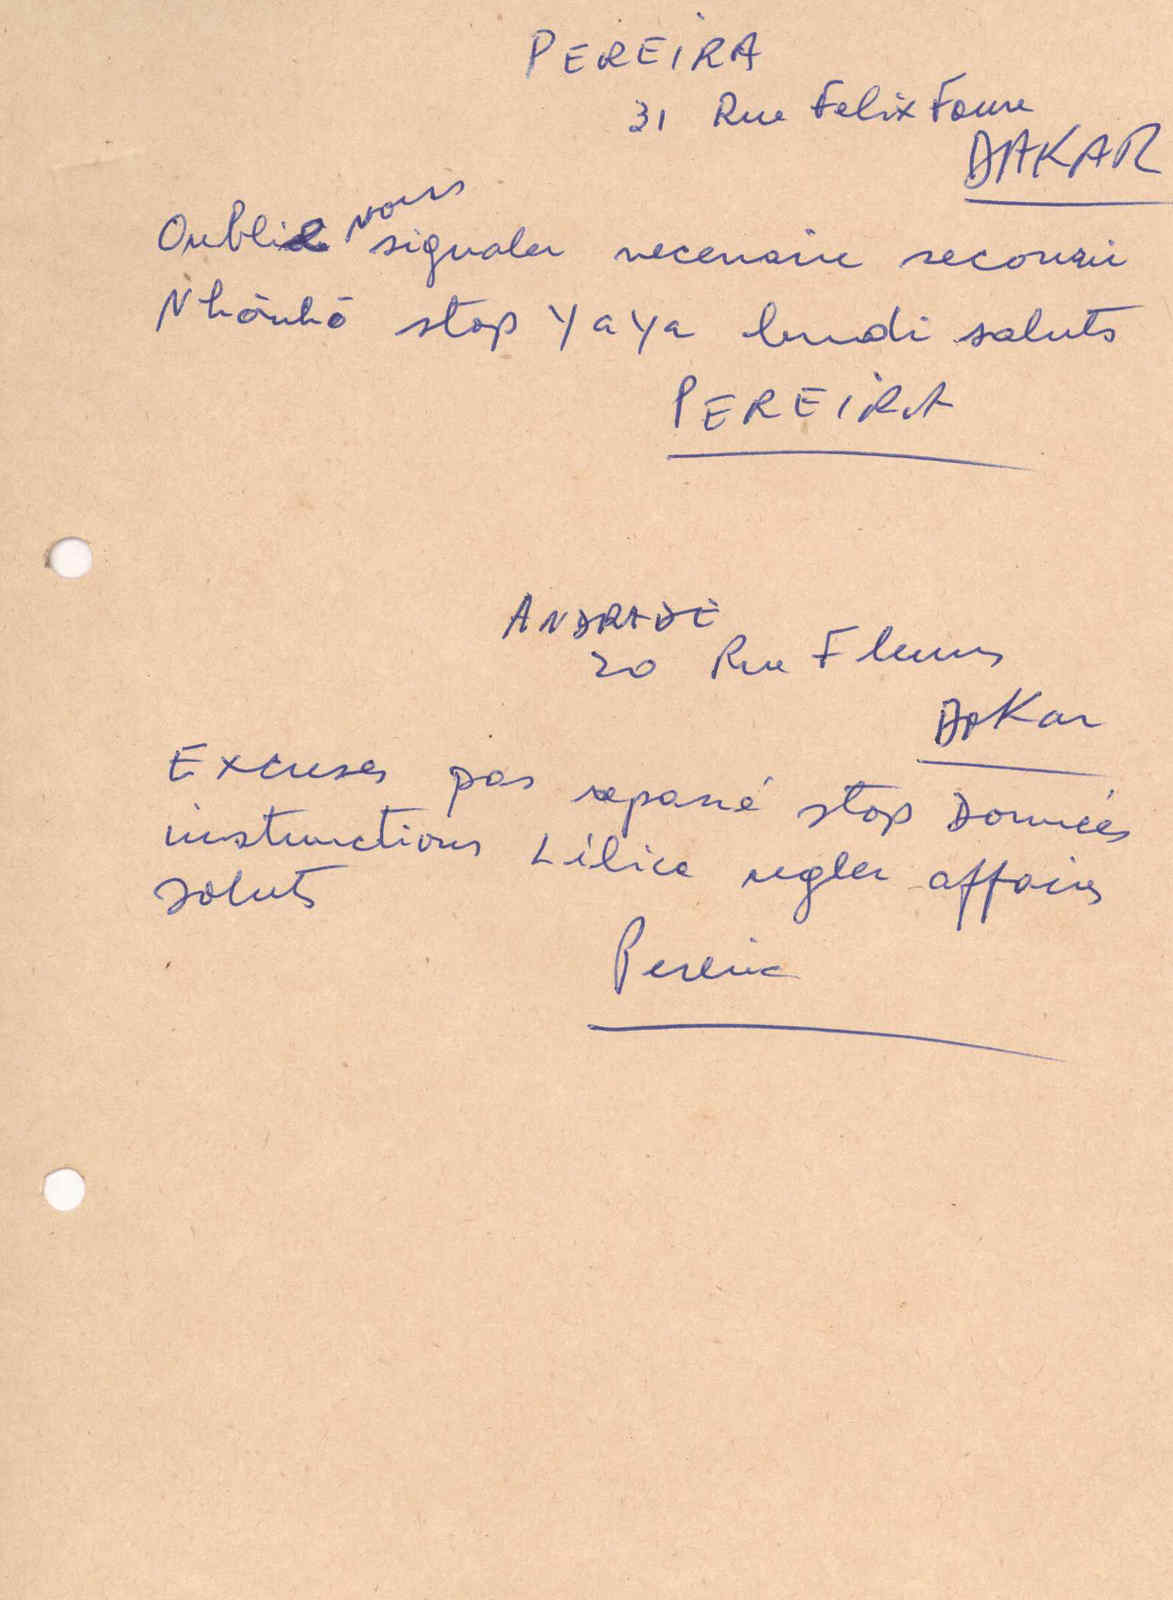 PEREIRA
31 Rue Felix Faure
DAKAR
Oublié vous signaler necessaire secourir
Nhônhô stop Yaya lundi saluts
PEREIRA
ANDRADE
20 Rue Fleurus
Dakar
Excuses pas repassé stop Données
instructions Lilica regler affaires
saluts
Pereira